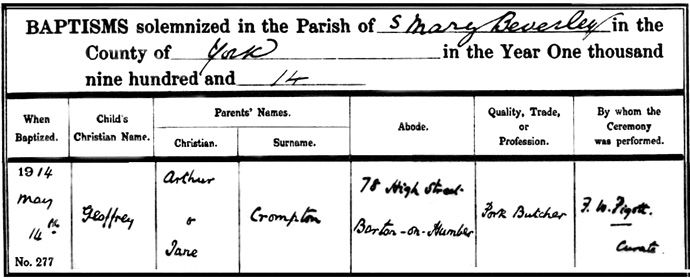 BAPTISMS solemnized in the Parish of S Mary Beverley in the
County of York in the Year One thousand
nine hundred and 14
When Baptized.
Child's Christian Name.
Parents' Names.
Christian.
Surname.
Abode.
Quality, Trade, or Profession.
By whom the Ceremony was performed.
1914
May
14th
No. 277
Geoffrey
Arthur
or
Jane
Crompton
78 High Street
Barton-on-Humber
Pork Butcher
F. W. Pigott.
Curate